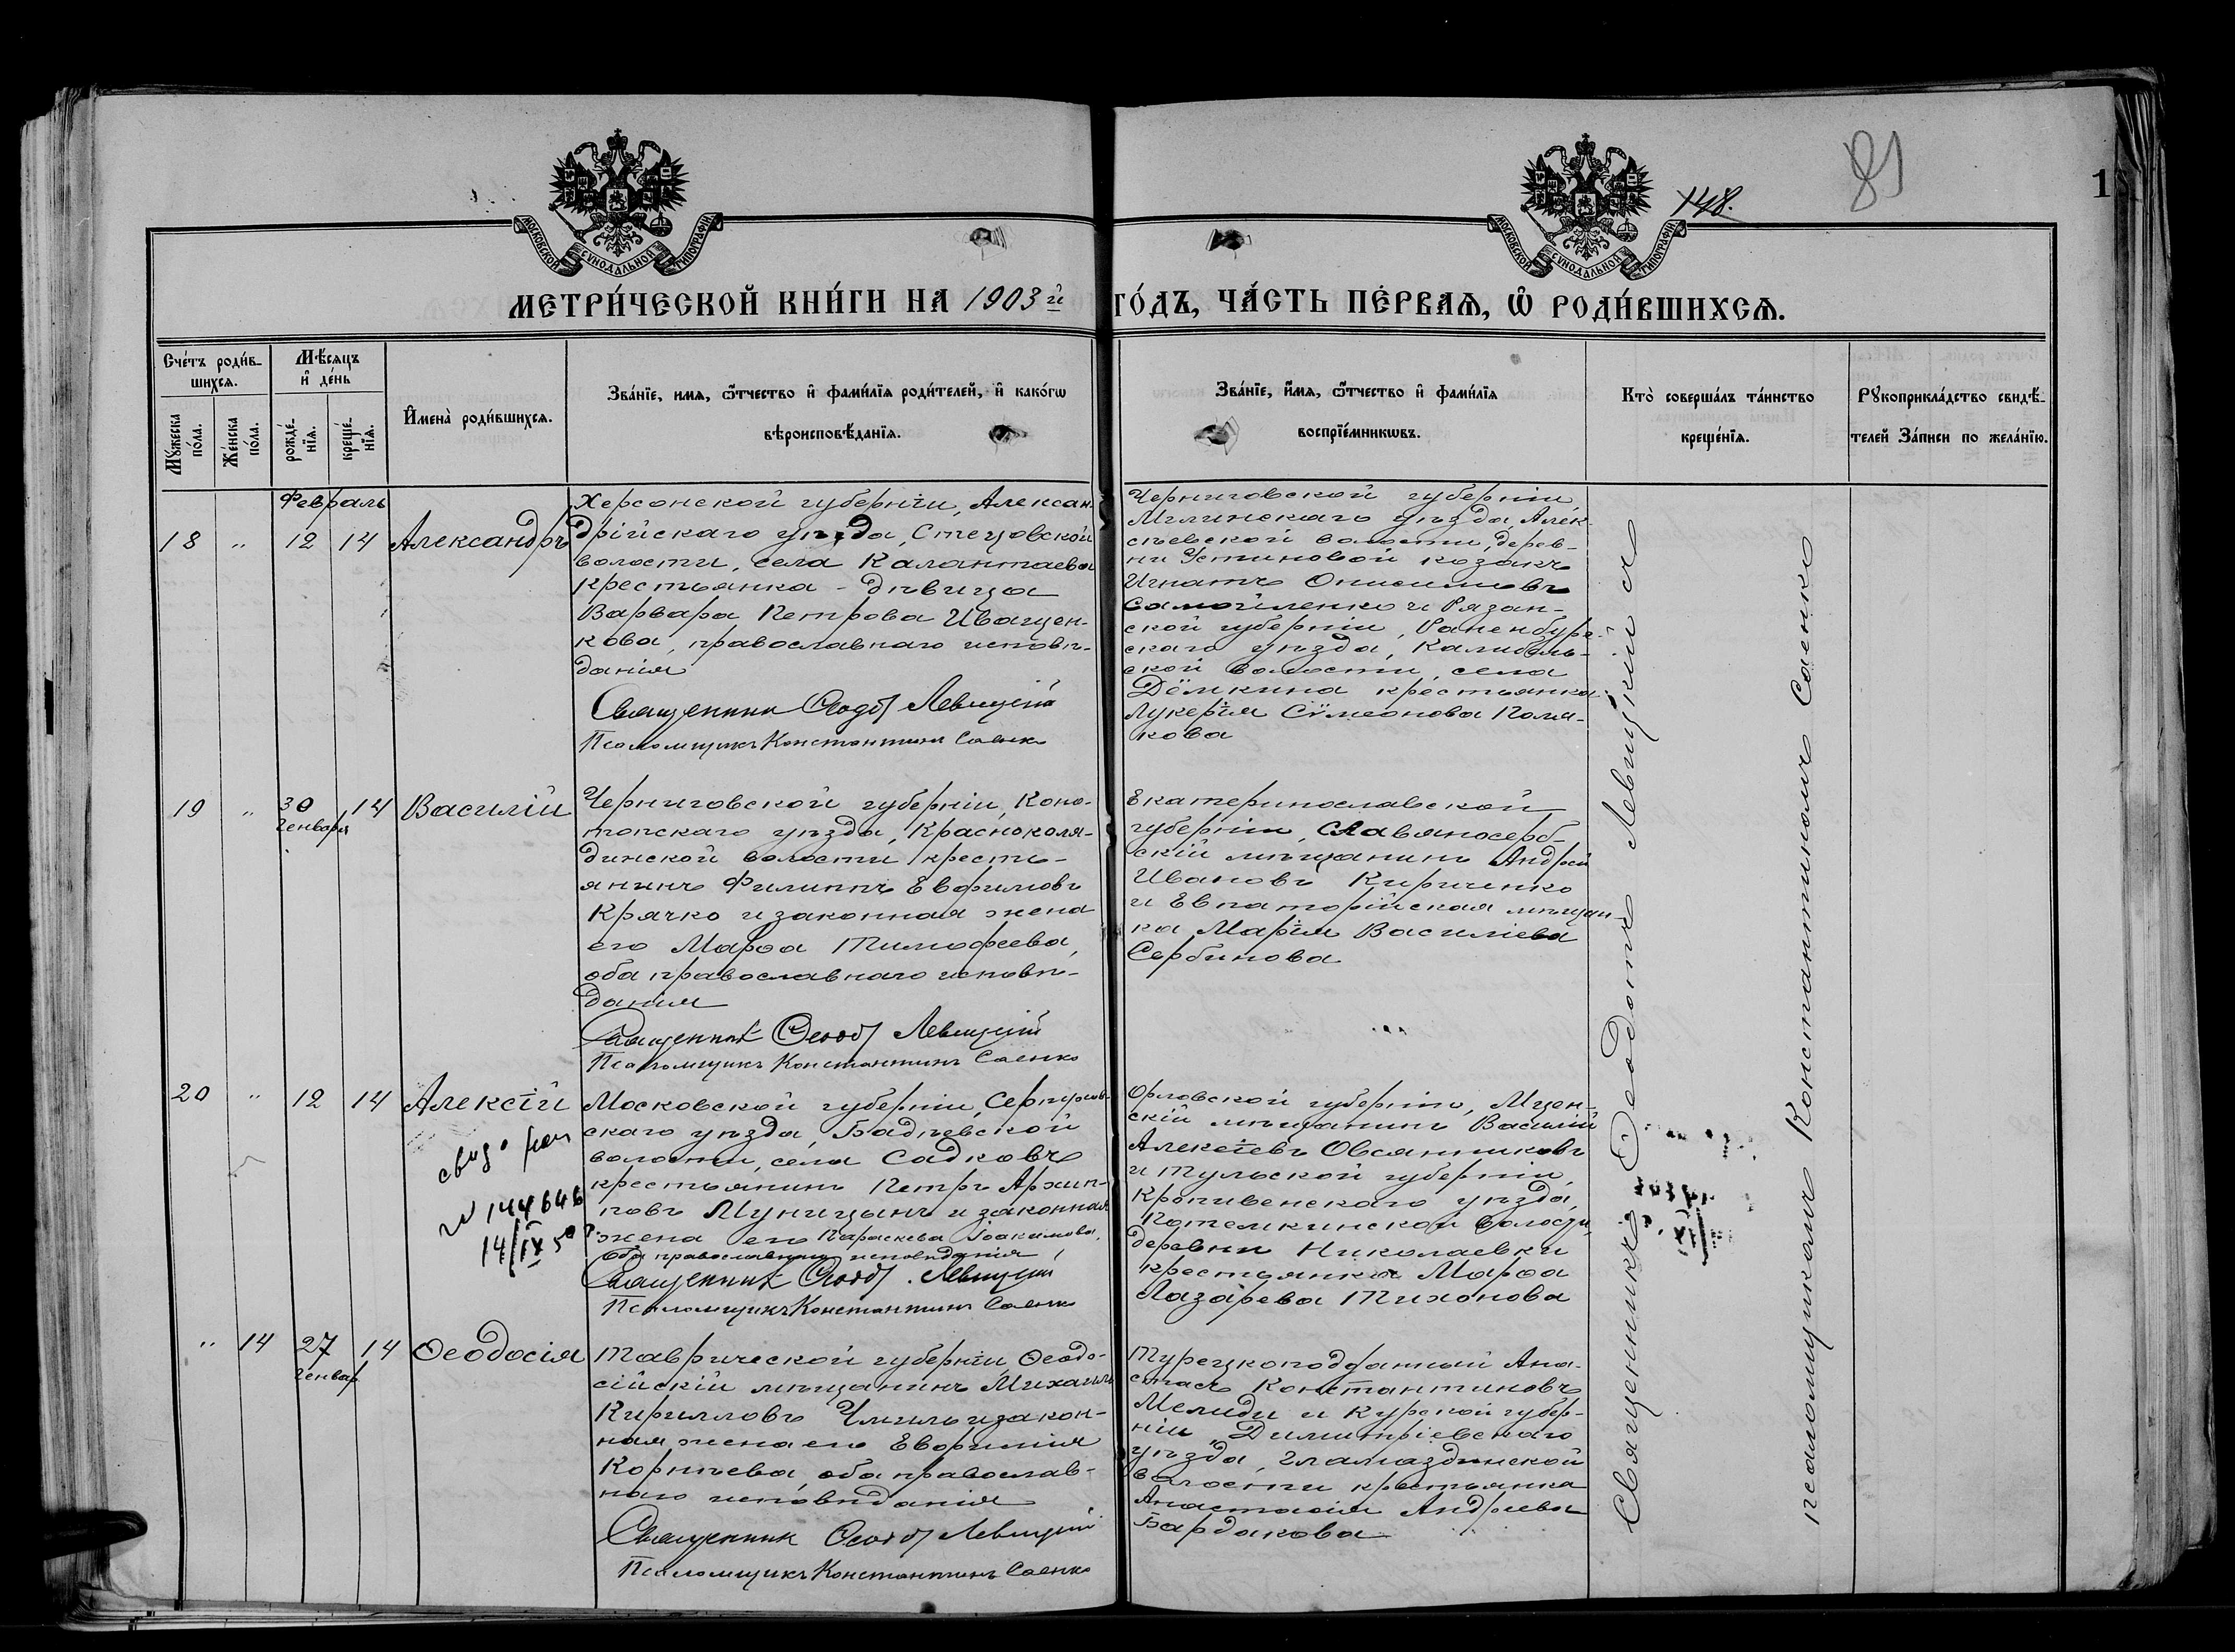 148.
81
1
МОСКОВСКОЙ СУНОДАЛЬНОЙ ТИПОГРАФІИ
МОСКОВСКОЙ СУНОДАЛЬНОЙ ТИПОГРАФІИ
МЕТРИ́ЧЕСКОЙ КНИ́ГИ НА 1903 й ГО́ДЪ, ЧА́СТЬ ПЕ́РВАѦ, Ѡ҆ РОДИ́ВШИХСѦ.
Сче́тъ роди́в-
шихсѧ.
Мѣ́сѧцъ
и҆ де́нь
Мꙋ́жеска по́ла.
Же́нска по́ла.
рожде́-
нїѧ.
креще́-
нїѧ.
И҆мена̀ роди́вшихсѧ.
Зва́нїе, имѧ, ѻ҆́тчество и҆ фами́лїѧ роди́телей, и҆ како́гѡ
вѣроисповѣ́данїѧ.
Зва́нїе, и҆́мѧ, ѻ҆́тчество и҆ фами́лїѧ
воспрїе́мникѡвъ.
Кто̀ соверша́лъ та́инство
креще́нїѧ.
Рꙋкоприкла́дство свидѣ́-
телей За́писи по жела́нїю.
Февраль
18 " 12 14 Александръ
Херсонской губерніи, Алексан-
дрійскаго уѣзда, Стецовской
волости, села Калантаева
крестьянка - дѣвица
Варвара Петрова Иващен-
кова, православнаго исповѣ-
данія
Священникъ Ѳеодотъ Левицкій
Псаломщикъ Константинъ Саенко
Черниговской губерніи,
Мглинскаго уѣзда, Алек-
сѣевской волости, дерев-
ни Устиновой козакъ
Игнатъ Онисимовъ
Самойленко и Рязан-
ской губерніи, Раненбург-
скаго уѣзда,
ской волости, села
Дёмкина крестьянка
Лукерія Сѵмеонова Пома-
кова
19 " 30 Генваря 14 Василій
Черниговской губерніи, Коно-
топскаго уѣзда, Красноколя-
динской волости крестья-
янинъ Филиппъ Евфимовъ
Крячко и законная жена
его Марѳа Тимофеева,
оба православнаго исповѣ-
данія
Священникъ Ѳеодотъ Левицкій
Псаломщикъ Константинъ Саенко
Екатеринославской
губерніи, Славяносерб-
скій мѣщанинъ Андрей
Ивановъ Кириченко
и Евпаторійская мѣщан-
ка Марія Василіева
Сербинова
20 " 12 14 Алексій
№ 144646
14/IX 50
Московской губерніи, Серпухов-
скаго уѣзда, Бадѣевской
волости, села Садковъ
крестьянинъ Петръ Архип-
повъ Муницынъ и законная
жена его Параскева Іоакимова,
оба православнаго исповѣданія
Священникъ Ѳеодотъ Левицкій
Псаломщикъ Константинъ Саенко
Орловской губерніи, Мцен-
скій мѣщанинъ Василій
Алексіевъ Овсянниковъ
и Тульской губерніи,
Кропивенскаго уѣзда,
Потемкинской волости,
деревни Николаевки
крестьянка Марѳа
Лазарева Тихонова
" 14 27 Генвар 14 Ѳеодосія
Таврической губерніи Ѳеодо-
сійскій мѣщанинъ Михаилъ
Кирилловъ Чмиль и закон-
ная жена его Евфимія
Корнѣева, оба православ-
наго исповѣданія
Священникъ Ѳеодотъ Левицкій
Псаломщикъ Константинъ Саенко
Турецкоподданный Ана-
стасъ Константиновъ
Мелиди и Курской губер-
ніи, Димитріевскаго
уѣзда, Гламаздинской
волости крестьянка
Анастасія Андреева
Бардакова
Священникъ Ѳеодотъ Левицкій съ
псаломщикомъ Константиномъ Саенко